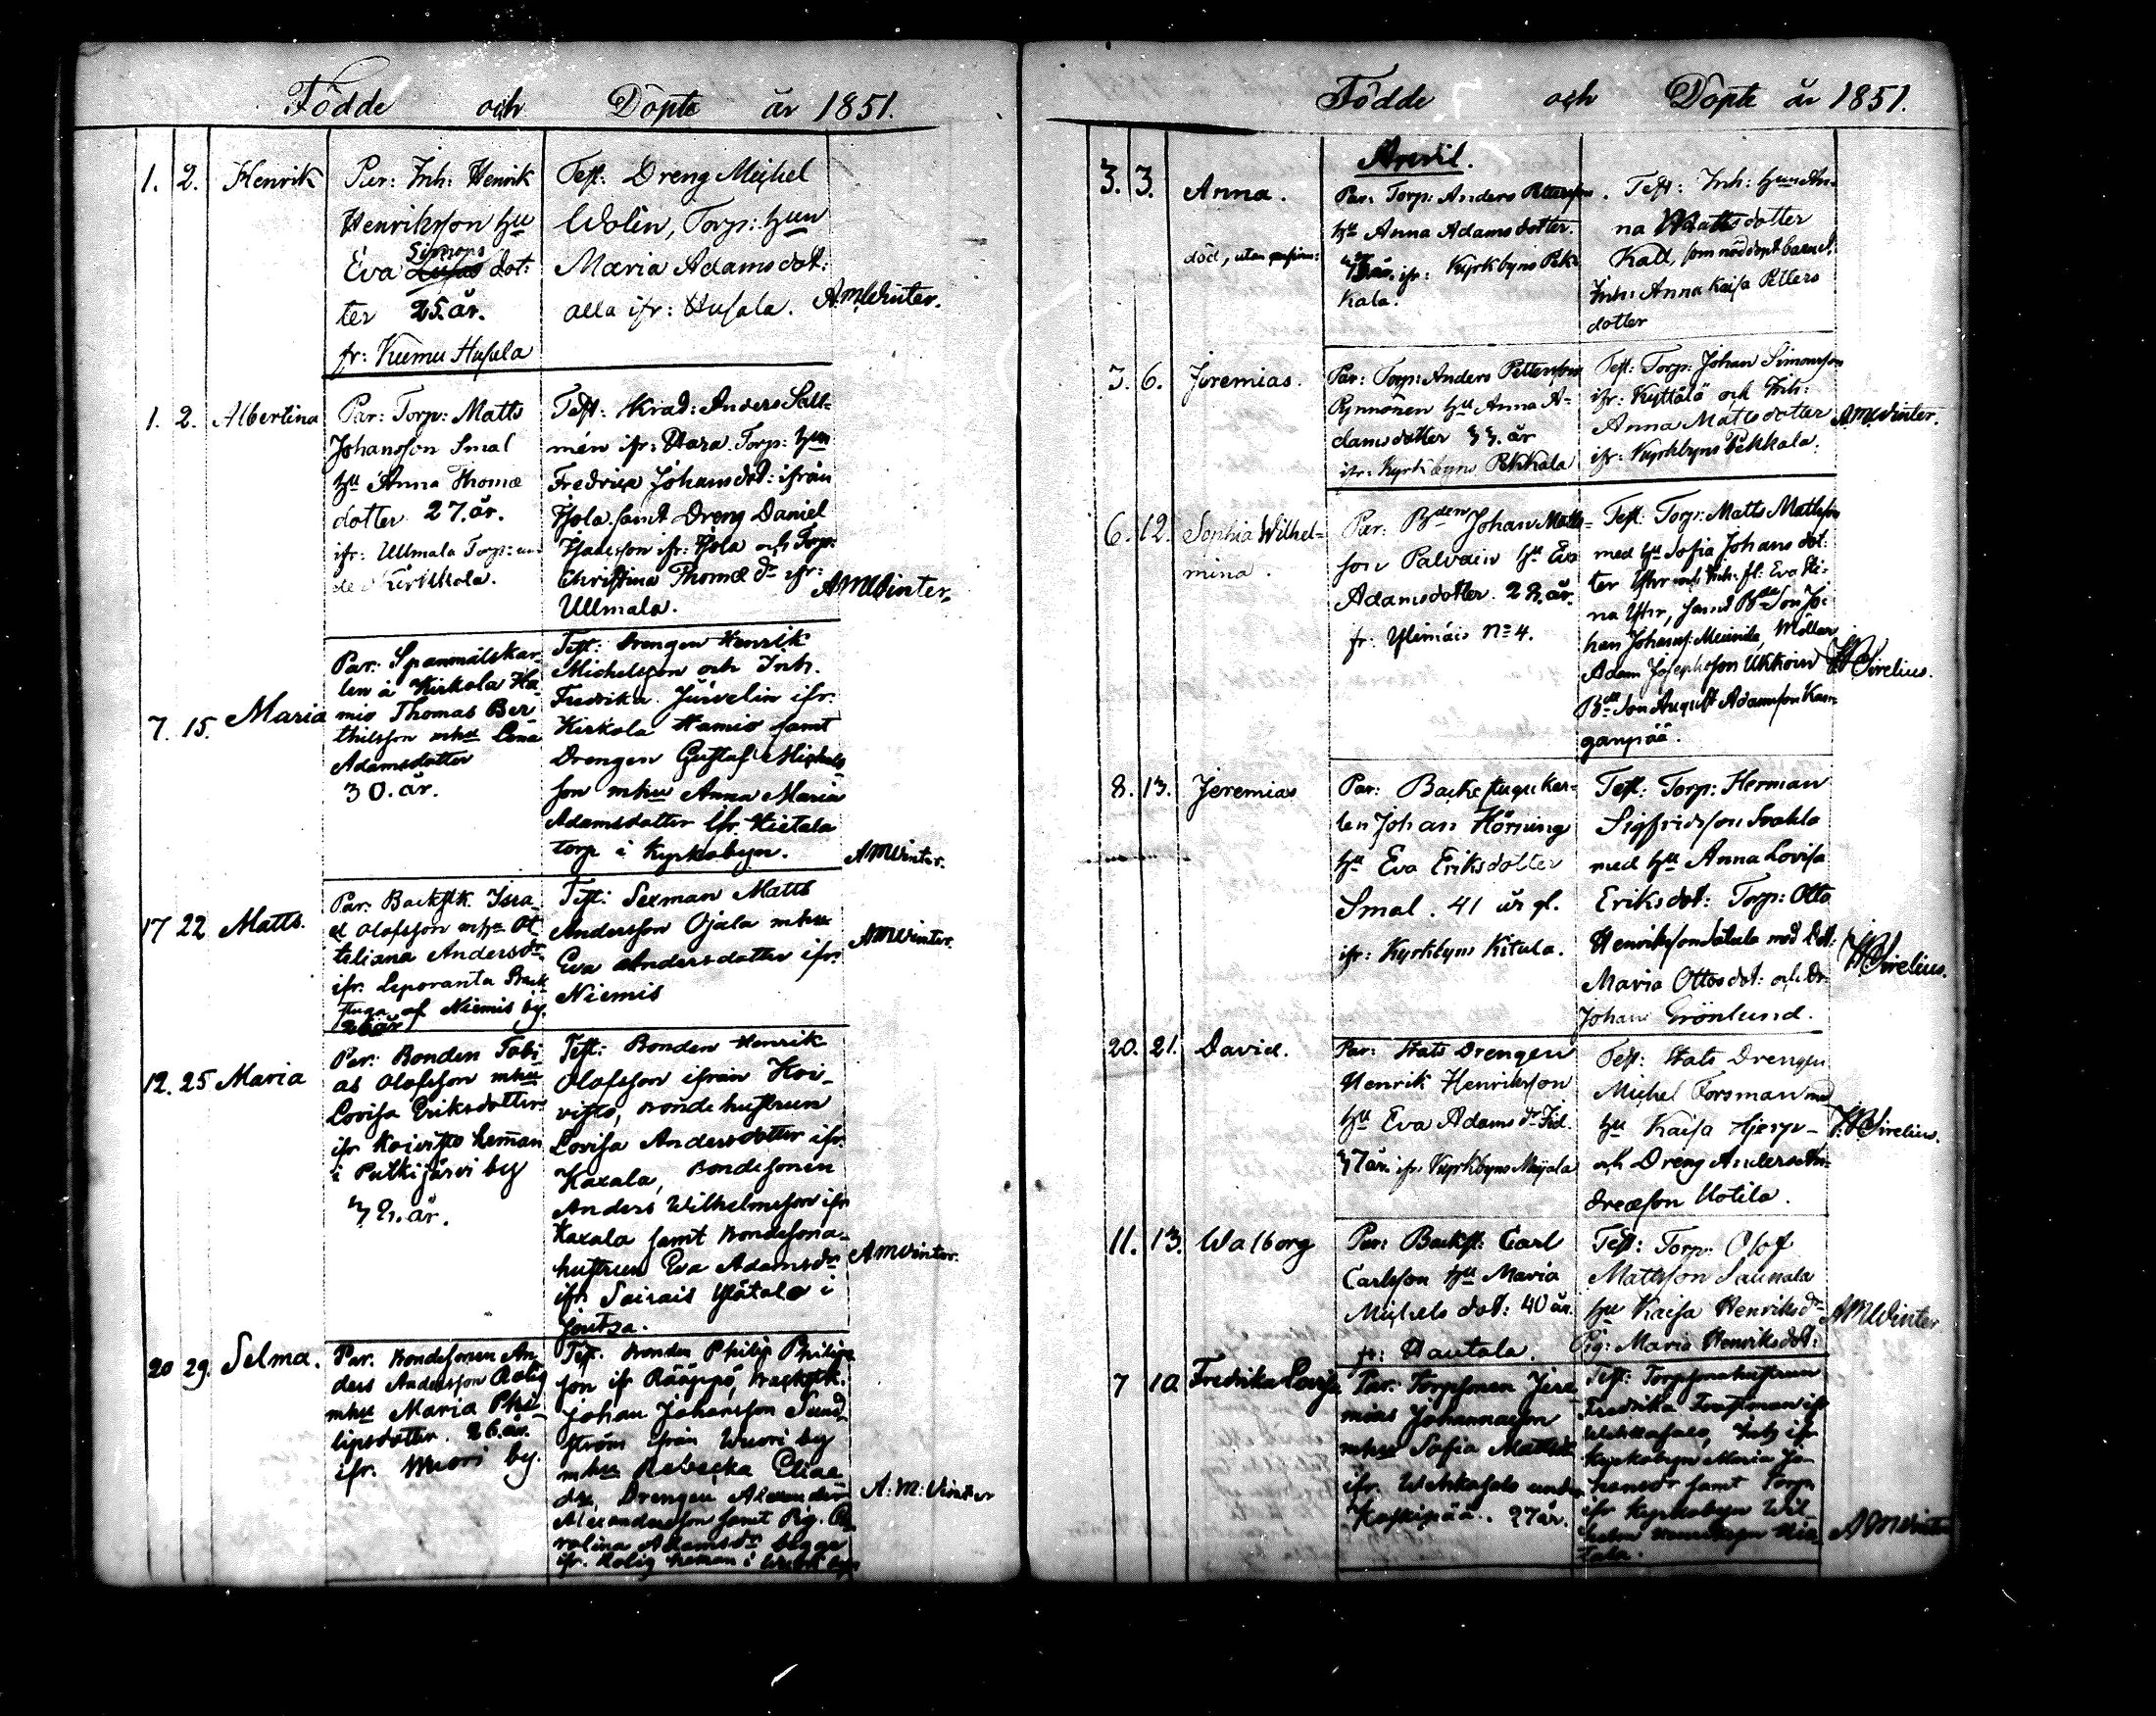 Födde och Döpte år 1851.
1. 2. Henrik
Par: Inh: Henrik
Henriksson hu
Simons
Eva dot:
ter 25. år.
fr: Kumu Husala
Test: Dreng Michel
Wolin, Torp: hun
Maria Adamsdot:
alla ifr: Husala.
AMWinter.
1. 2. Albertina
Par: Torp: Matts
Johansson Smal
hu Anna Thomæ
dotter 27. år.
ifr: Ullmala Torp: un
Test: Anders Sall-
mén ifr: Torp: hun
Fredrica Johansdot: ifrån
samt Dreng Daniel
ifr: och Torp:
Christina Thomæ dr ifr:
Ullmala.
AMWinter.
7. 15. Maria
Par: Spannmålskar-
len å Kirkola Ha-
mio Thomas Ber-
thilsson mhu Lena
Adamsdotter
30. år.
Test: Drengen Henrik
Michelsson och Inh.
Fredrika Järvelin ifr.
Kirkola Hamio samt
Drengen Gustaf Michels-
son mhu Anna Maria
Adamsdotter ifr. Hietala
torp i Kyrkobyn.
AMWinter.
17 22 Matts.
Par. Backstk. Isra-
el Olofsson mhu Ot-
teliana Andersdr
ifr. Leporanta Back-
stuga af Niemis by.
26 år
Test: Sexman Matts
Andersson Ojala mhu
Eva Andersdotter ifr:
Niemis
AMWinter.
12. 25 Maria
Par: Bonden Tobi-
as Olofsson mhu
Lovisa Eriksdotter
ifr Koivisto heman
i Putkijärvi by
år.
Test: Bonden Henrik
Olofsson ifrån Koi-
visto, Bondehustrun
Lovisa Andersdotter ifr.
Haxala, Bondesonen
Anders Wilhelmsson ifr
Haxala samt Bondesona-
hustrun Eva Adamsdr
ifr. Sairais Ylötalo i
AMWinter.
20 29. Selma.
Par. Bondesonen An-
ders Andersson Rolig
mhu Maria Phi-
lipsdotter. 26. år.
ifr. Wuori by.
Test. Bonden Philip Philips-
son ifr Rääppö, Backstk.
Johan Johansson Sund-
ström från Wuori by
mhu Rebecka Eliae
dr, Drengen Alexander
Alexandersson samt Pig. Ca-
rolina Adamsdr begge
ifr. Rolig heman i Wuori by.
A: M: Winter
Födde och Döpte år 1851.
April.
3. 3. Anna.
död,
Par: Torp: Anders Pettersson
hu Anna Adamsdotter.
år. ifr: Kyrkbyns Pek-
kala.
Test: Inh: hun An-
na Mattsdotter
Kall, som nöddöpt barnet.
Inh: Anna Kaisa Petters
dotter
3. 6. Jeremias.
Par: Torp: Anders Pettersson
Pynnönen hu Anna A-
damsdotter 33. år
ifr: Kyrkbyns Pekkala
Test: Torp: Johan Simonsson
ifr: Kyttälä och Inh:
Anna Mattsdotter
ifr: Kyrkbyns Pekkala.
AMWinter.
6. 12. Sophia Wilhel-
mina.
Par: Bden Johan Matts-
son Palvain hu Eva
Adamsdotter. 28. år.
fr: Ylimäis No 4.
Test: Torp: Matts Mattsson
med hu Sofia Johansdot:
ter Yhr
na Yhr, samt Bde Son Jo-
han Johans:
Adam Josephsson Ukkoin
Bde Son August Adamsson Kan-
ganpää.
Sirelius.
8. 13. Jeremias
Par: Backstugukar-
len Johan Hörning
hu Eva Eriksdotter
Smal. 41 år gl.
ifr: Kyrkbyns Kitula.
Test: Torp: Herman
Sigfridsson
med hu Anna Lovisa
Eriksdot: Torp: Otto
Henriksson med Dot:
Maria Ottosdot: och Dr:
Johan Grönlund.
Sirelius.
20. 21. David.
Par: Stats Drengen
Henrik Henriksson
hu Eva Adams dr
37 år. ifr: Kyrkbyns
Test: Stats Drengen
Michel Forsman med
hu Kaisa
och Dreng Anders An-
dreæson Uotila.
Sirelius.
11. 13. Walborg
Par: Backst: Carl
Carlsson hu Maria
Michels dot: 40 år.
fr: Hautala.
Test: Torp: Olof
Mattsson Saunala
hu Kaisa Henriksdr
Pig: Maria Henriksdot:
AMWinter
7 10 Fredrika Lovisa
Par: Torpsonen Jere-
mias Johannesson
mhu Sofia Mattsdr
ifr. Wehkasalo under
Koskipää. 27 år.
Test: Torpsonahustrun
Fredrika ifr
Wehkasalo, Inh ifr
Kyrkobyn Maria Jo-
hansdr samt Torp.
ifr Kyrkobyn Wil-
helm Hie-
tala.
AMWinter